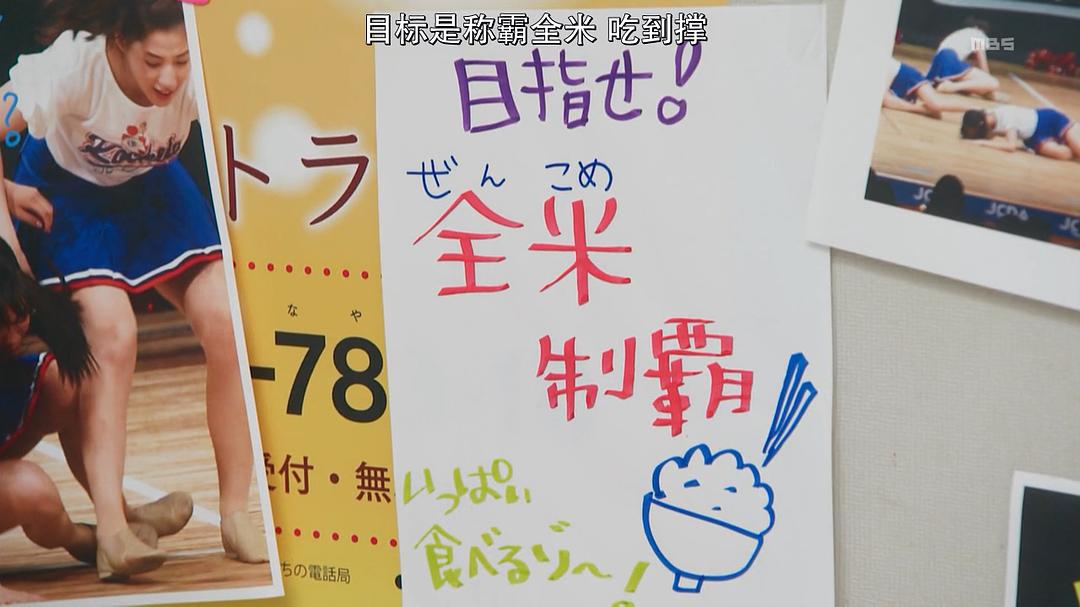 目标是称霸全米 吃到撑
MBS
目指せ!
ぜんこめ
全米
制覇
いっぱい
食べるゾ〜!
?
トラ
なや
-78
受付・無
ちの電話局